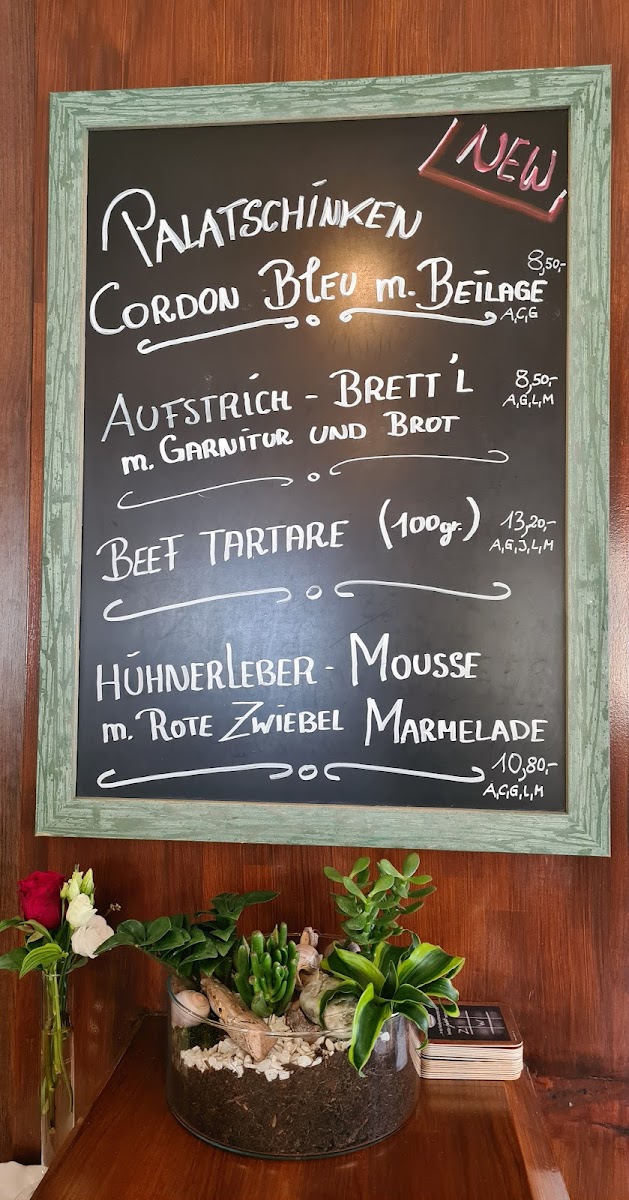 NEW
PALATSCHINKEN
8,50,-
CORDON BLEU m. BEILAGE
A,C,G
AUFSTRICH - BRETT'L 8,50,-
A,G,L,M
m. GARNITUR UND BROT
BEEF TARTARE (100gr.) 13,20,-
A,G,J,L,M
HÜHNERLEBER - MOUSSE
m. ROTE ZWIEBEL MARMELADE
10,80,-
A,C,G,L,M